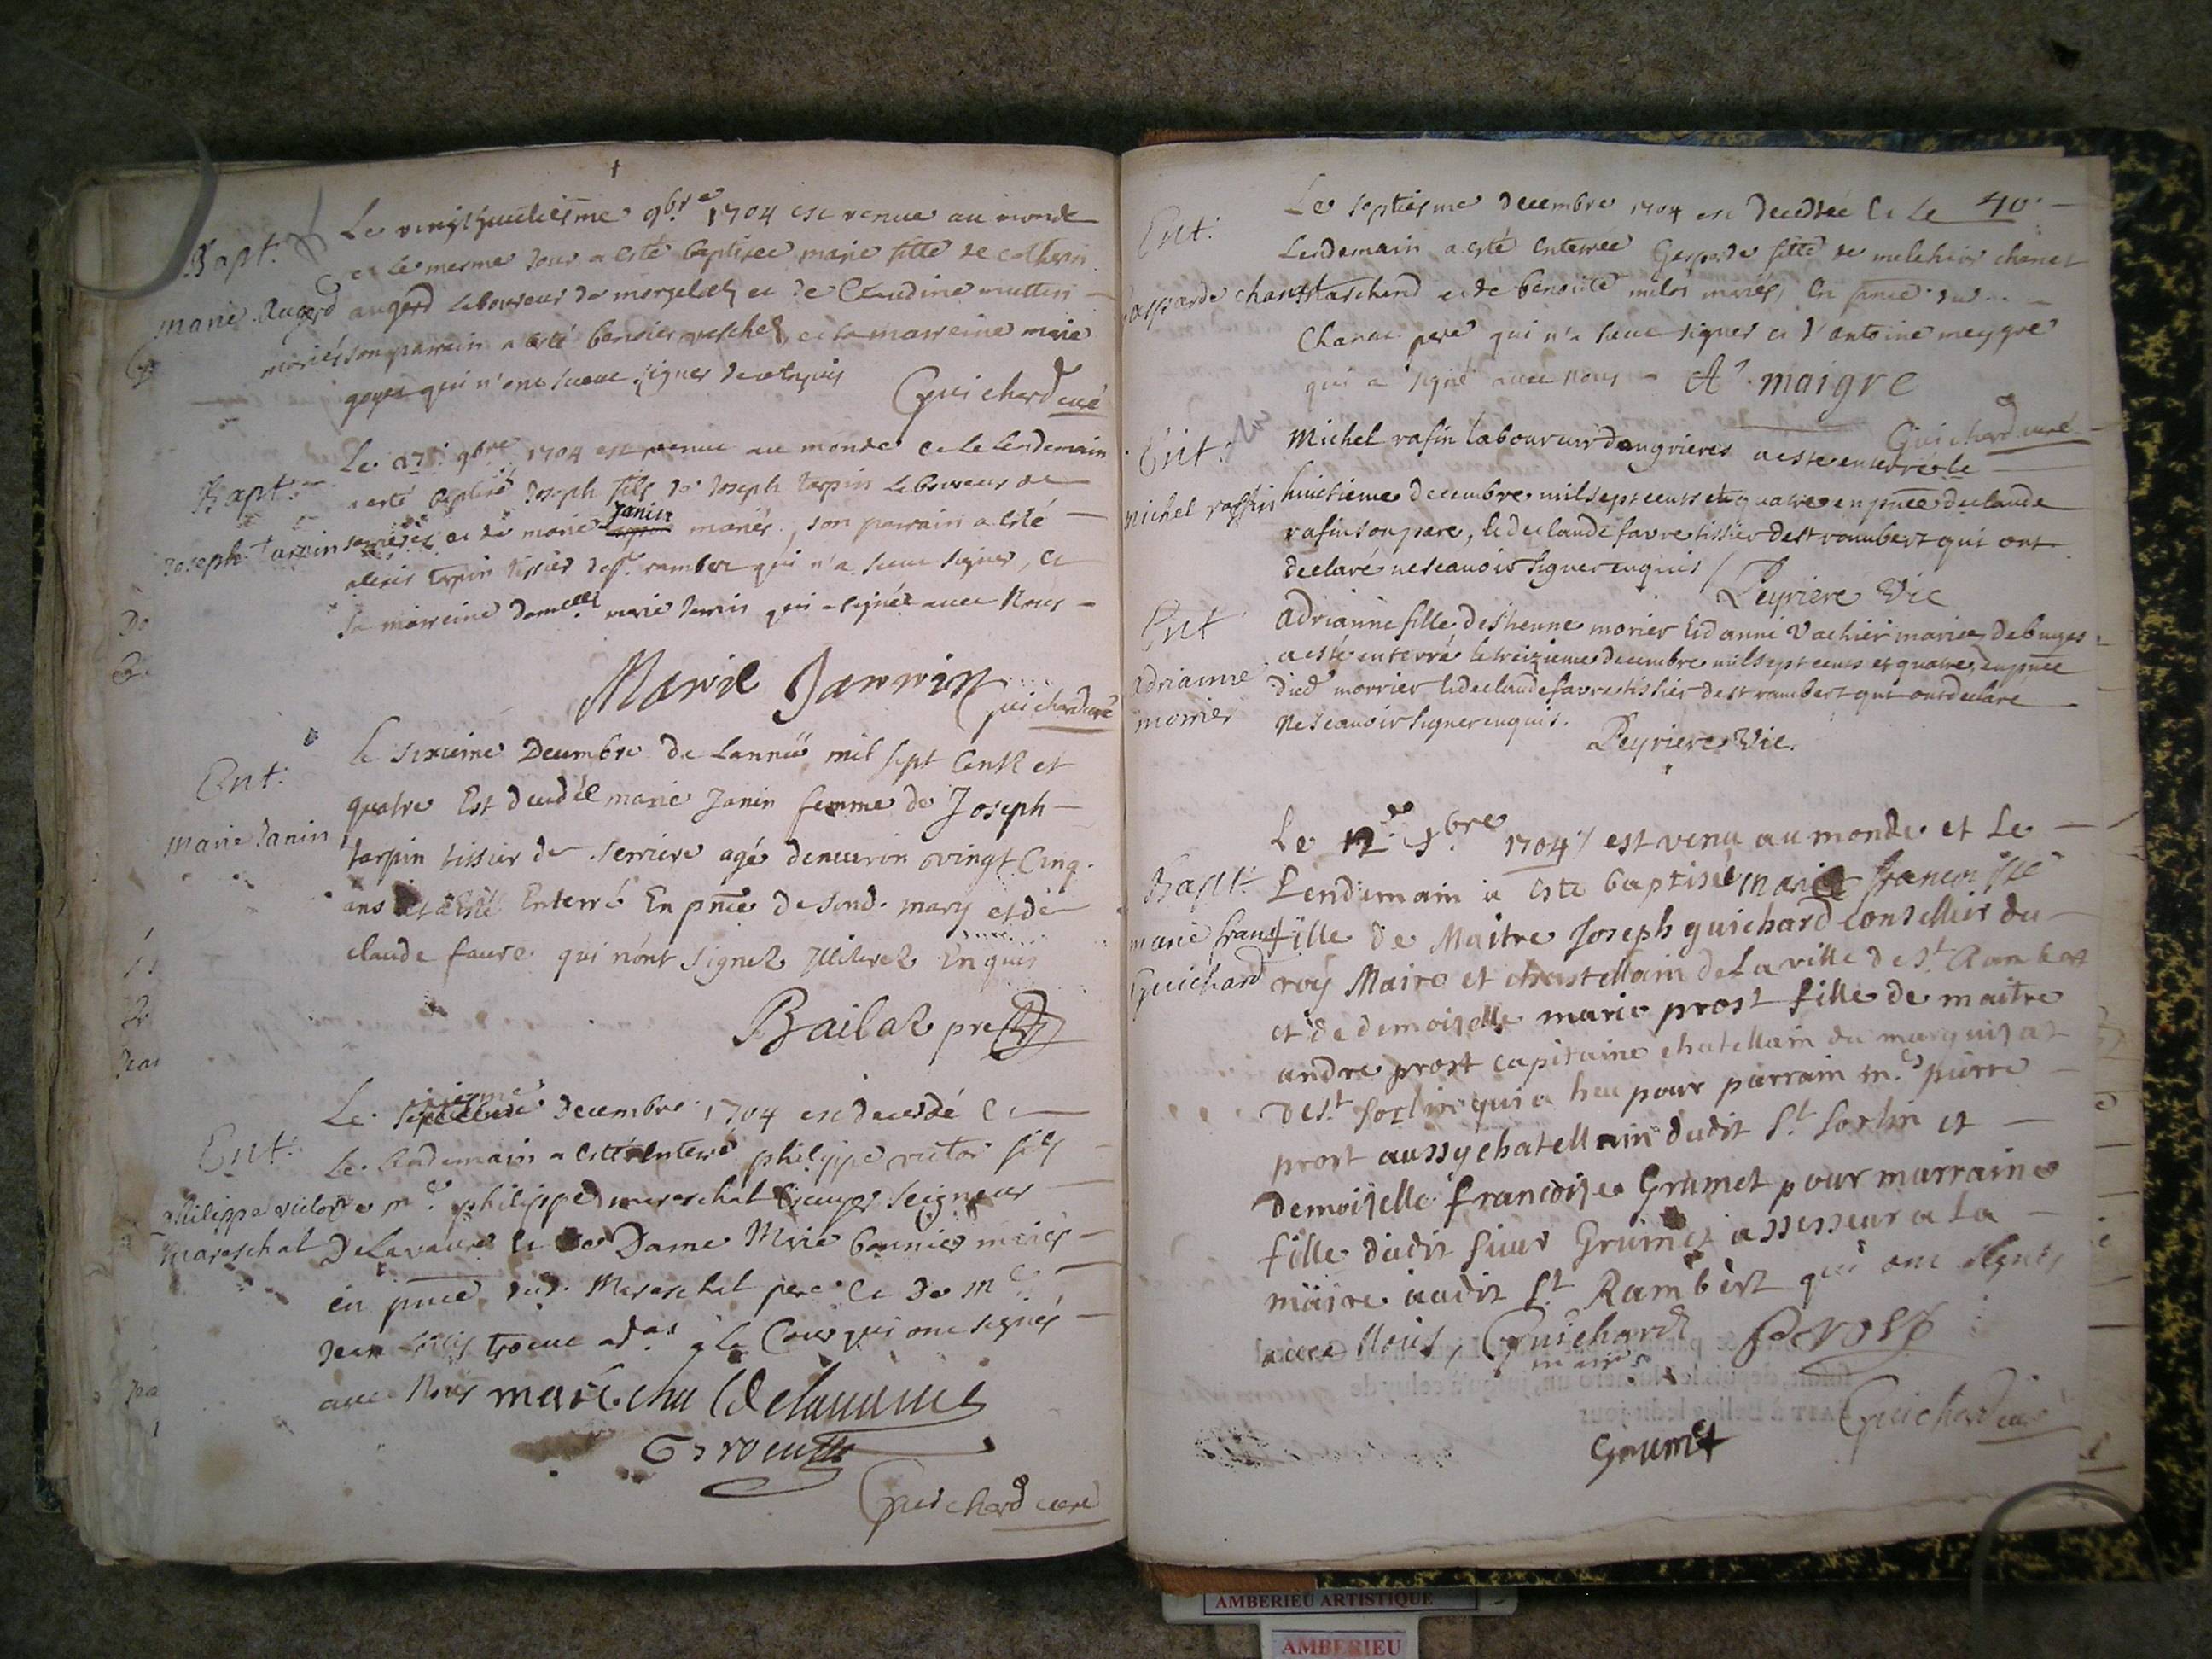 Bapt.
Marie Augerd
Le vingthuictiesme 9bre 1704 est venue au monde
et le mesme jour a esté baptisée marie fille de
augerd laboureur de morgelas et de Claudine
mariés son parrain a esté benoier et sa marreine marie
qui n'ont sceue signer de ce requis
Guichard curé
Bapt.
Joseph tarpin
Le 27e 9bre 1704 est venu au monde et le lendemain
a esté baptisé Joseph fils de Joseph tarpin laboureur de
serrieres et de marie Janin mariés, son parrain a esté
alexis tarpin tissier de st rambert qui n'a sceue signer, et
sa marreine damelle marie Janin qui a signée avec Nous
Marie Jannin
Guichard curé
Ent.
Marie Janin
le sixieme Decembre de Lannée mil sept Cents et
quatre Est decedée marie Janin femme de Joseph
tarpin tissier de serriere agé denuiron vingt Cinq
ans et a Esté Enterré En pnce de sond. mary et de
claude faure qui n'ont signez Illiterez Enquis
Bailat pre
Ent.
philippe victor
Mareschal
Le Decembre 1704 est decedé et
Le lendemain a esté enteré philippe victor fils
de mre philippe mareschal Seigneur
Delavaure et de Dame Marie bonnier mariés
en pnce dud. Mareschal pere et de Mr
Jean Louis trocue adat a la Cour qui ont signés
avec Nous marechal Delavaure
Trocu
Guichard curé
40
Ent.
Gasparde
Le septiesme decembre 1704 est decedée et le
Lendemain a esté enterrée Gasparde fille de melchior chanet
marchand et de benoite milet mariés, En pnce dud
Chanet pere qui n'a sceue signer et d'antoine meygre
qui a signé avec nous
At maigre
Guichard curé
Ent.
Michel raffin
Michel rafin laboureur dangrieres a este enterré le
huictieme decembre mil sept cents et quatre en pnce de claude
rafin son pere, et de claude favre tissier de st rambert qui ont
declaré ne scauoir signer enquis
Peyriere Vic
Ent
Adrianne
morier
Adrianne fille destienne morier et danne Vachier maries de buges
a esté enterré le treizieme decembre mil sept cents et quatre, en pnce
dud morrier et de claude favre tissier de st rambert qui ont declare
ne scauoir signer enquis.
Peyriere Vic.
Bapt.
marie franç
Guichard
Le 12e Xbre 1704 est venu au monde et Le
Lendemain a este baptisée marie francoise
fille de Maitre Joseph guichard Conseillier du
roy Maire et chastellain de La ville de st Rambert
et de demoiselle marie prost fille de maitre
andre prost capitaine chatellain du marquisat
de st sorlin qui a heu pour parrain mre pierre
prost aussy chatellain dudit st sorlin et
demoiselle francoise Grumet pour marraine
fille dudit sieur Grumet assesseur a La
maire audit st Rambert qui ont signés
avec Nous, Guichard Prost
maire
Guichard curé
Grumet
AMBERIEU ARTISTIQUE
AMBERIEU